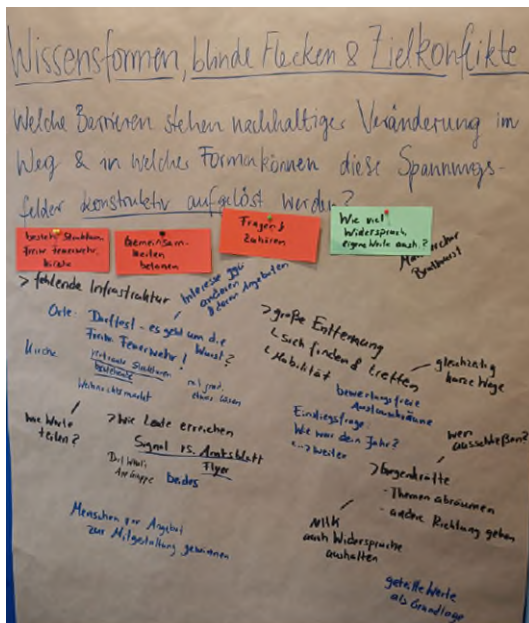 Wissensformen, blinde Flecken & Zielkonflikte
Welche Barrieren stehen nachhaltiger Veränderung im
Weg & in welcher Formen können diese Spannungs-
felder konstruktiv aufgelöst werden?
besteh. Strukturen
Freiw. Feuerwehr,
Kirche
Gemeinsam-
keiten
betonen
Fragen &
Zuhören
Wie viel
Widerspruch
eigene Werte aush.?
Bratwurst
> fehlende Infrastruktur
Interesse ggü
anderen
& deren Angeboten
Orte: Dorffest - es geht um die
Freiw. Feuerwehr! Wurst?
Kirche
bestehende
Weihnachtsmarkt
wie Werte
teilen?
> Wie Leute erreichen
Signal vs. Amtsblatt
Flyer
beides
Menschen vor Angebot
zur Mitgestaltung gewinnen
> große Entfernung
sich finden & treffen
Mobilität
gleichzeitig
kurze Wege
bewertungsfreie
Austauschräume
Einstiegsfrage:
Wie war dein Jahr?
...> weiter
wen
ausschließen?
> Gegenkräfte
- Themen abräumen
- andere Richtung geben
auch Widersprüche
aushalten
geteilte Werte
als Grundlage